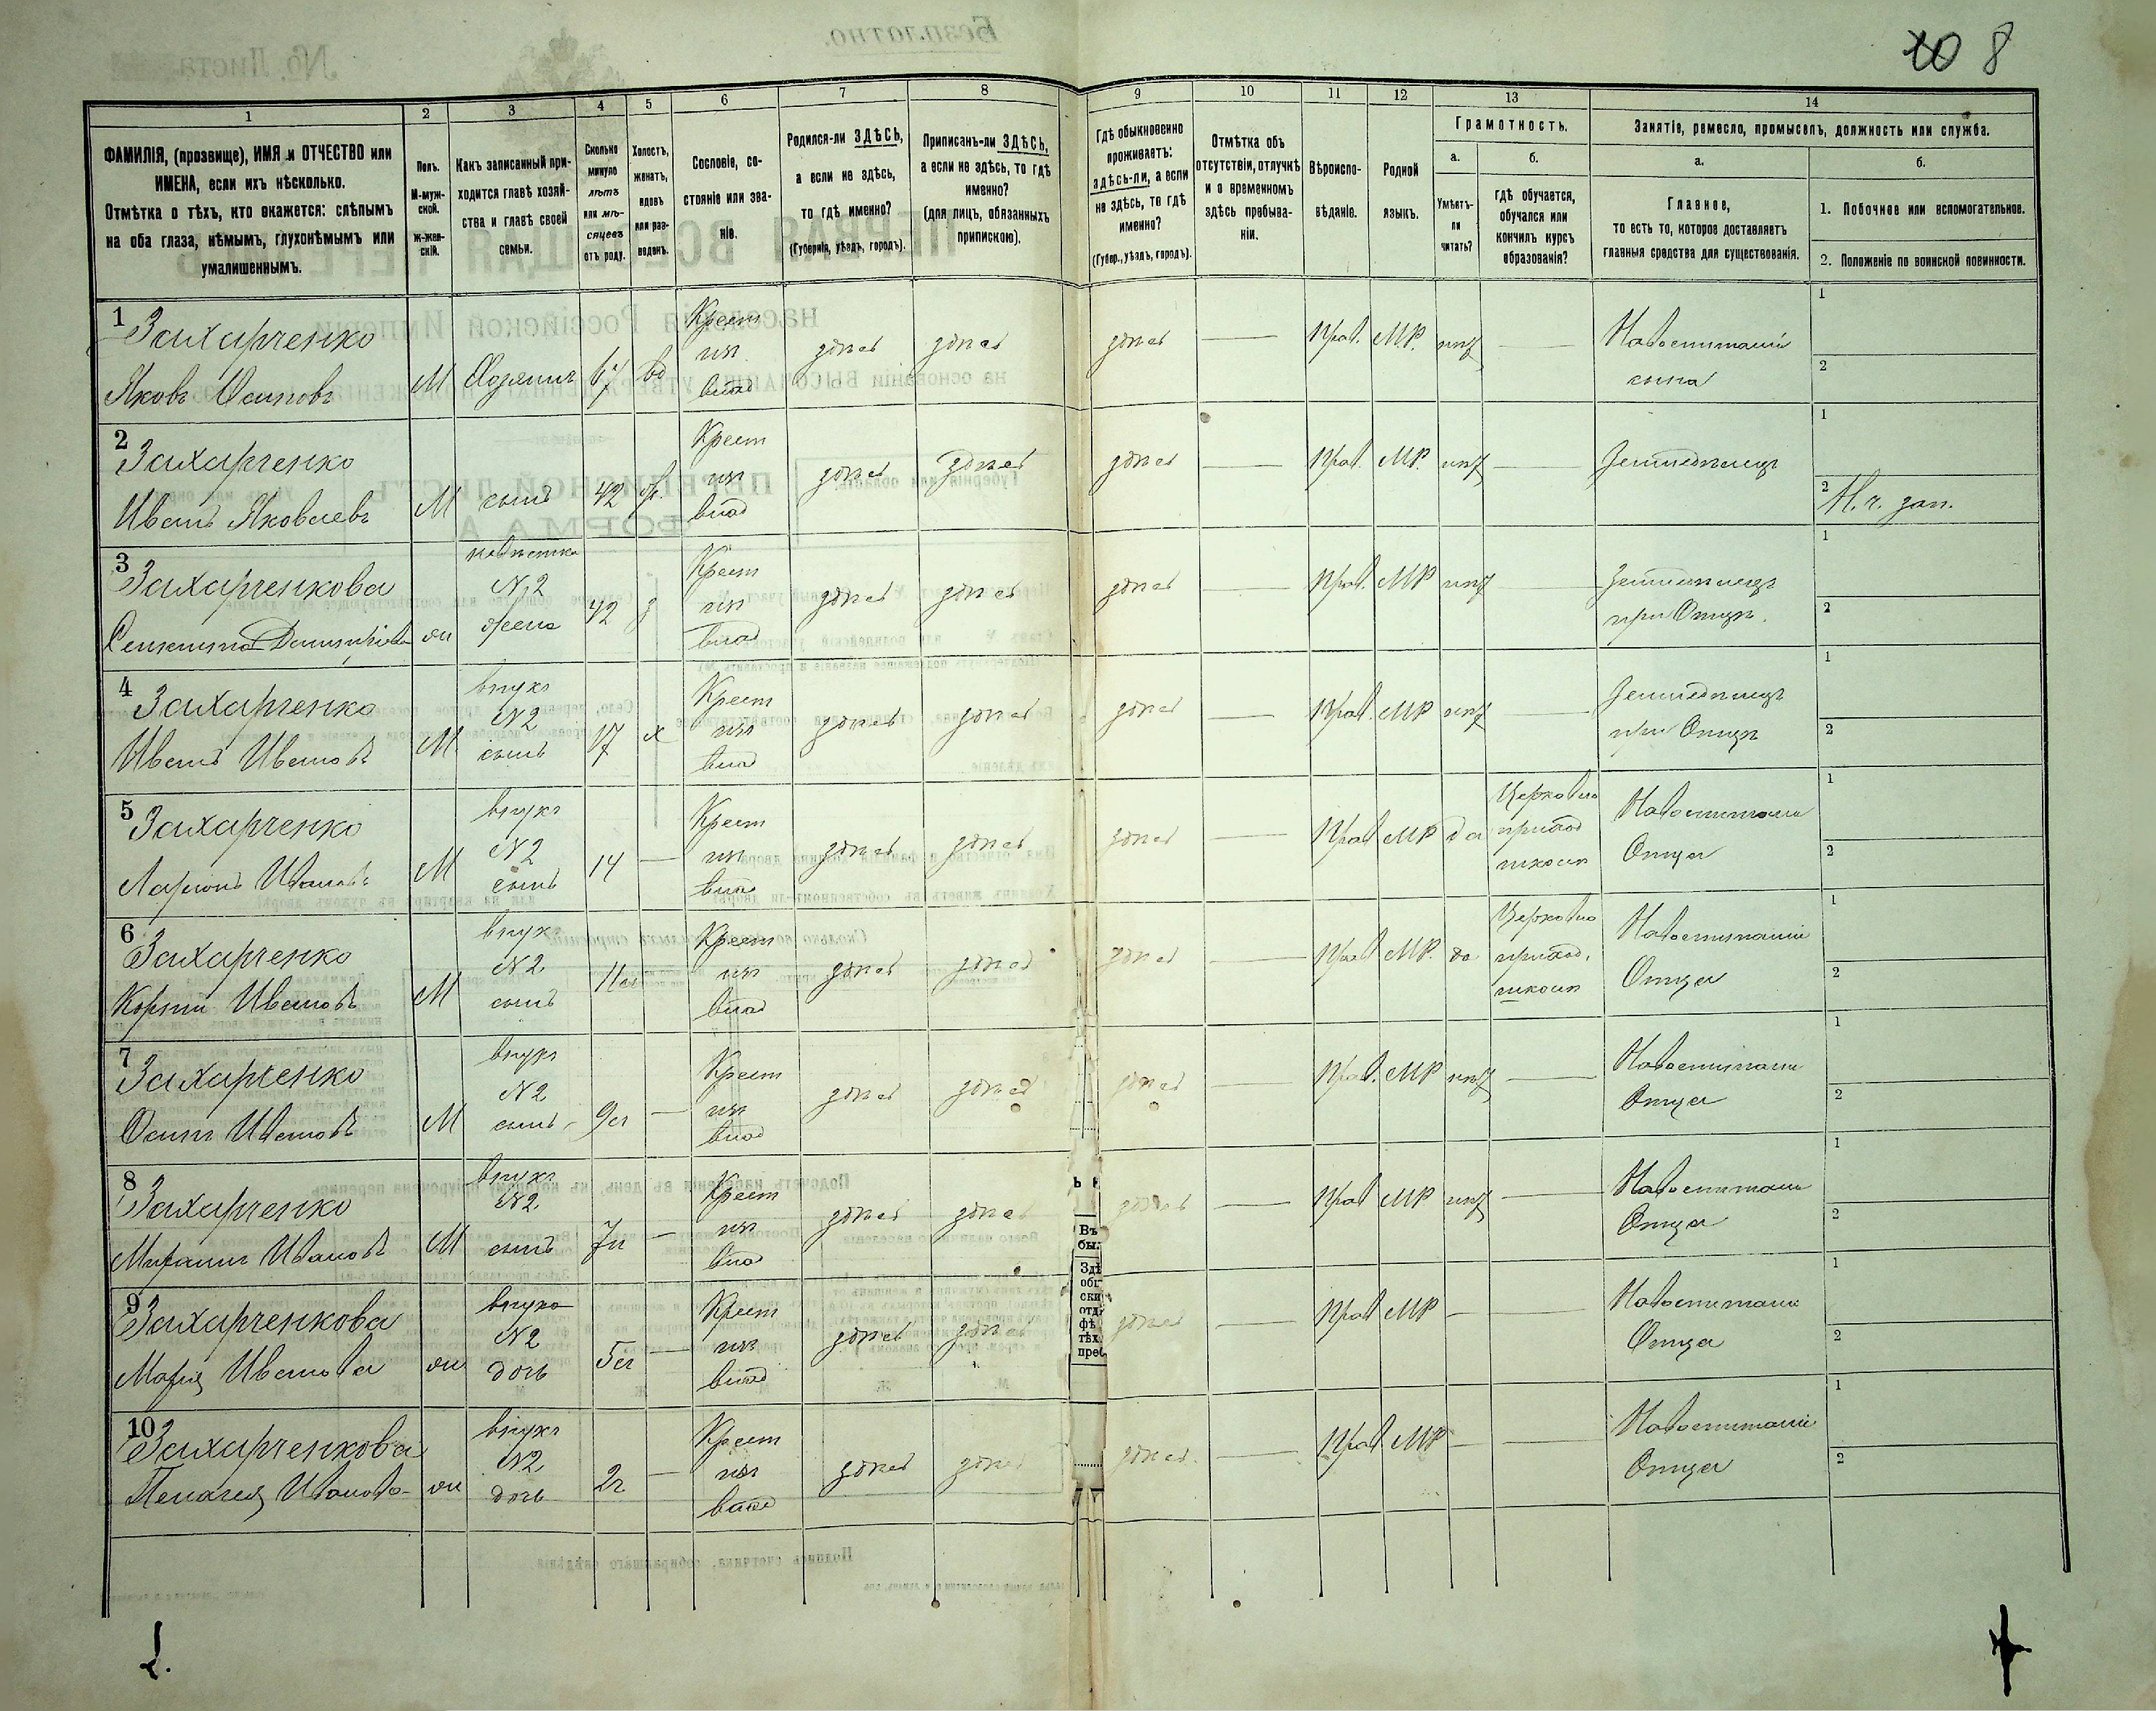 10 8
1
2
3
4
5
6
7
8
9
10
11
12
13
14
ФАМИЛІЯ, (прозвище), ИМЯ и ОТЧЕСТВО или
ИМЕНА, если ихъ нѣсколько.
Отмѣтка о тѣхъ, кто окажется: слѣпымъ
на оба глаза, нѣмымъ, глухонѣмымъ или
умалишеннымъ.
Полъ.
М-муж-
ской.
Ж-жен-
скій.
Какъ записанный при-
ходится главѣ хозяй-
ства и главѣ своей
семьи.
Сколько
минуло
лѣтъ
или мѣ-
сяцевъ
отъ роду.
Холостъ,
женатъ,
вдовъ
или раз-
веденъ.
Сословіе, со-
стояніе или зва-
ніе.
Родился-ли ЗДѢСЬ,
а если не здѣсь,
то гдѣ именно?
(Губернія, уѣздъ, городъ).
Приписанъ-ли ЗДѢСЬ,
а если не здѣсь, то гдѣ
именно?
(для лицъ, обязанныхъ
припискою).
Гдѣ обыкновенно
проживаетъ:
здѣсь-ли, а если
не здѣсь, то гдѣ
именно?
(Губер., уѣздъ, городъ).
Отмѣтка объ
отсутствіи, отлучкѣ
и о временномъ
здѣсь пребыва-
ніи.
Вѣроиспо-
вѣданіе.
Родной
языкъ.
Грамотность.
а.
Умѣетъ-
ли
читать?
б.
Гдѣ обучается,
обучался или
кончилъ курсъ
образованія?
Занятіе, ремесло, промыселъ, должность или служба.
а.
Главное,
то есть то, которое доставляетъ
главныя средства для существованія.
б.
1. Побочное или вспомогательное.
2. Положеніе по воинской повинности.
1 Захарченко
Яковъ Осиповъ М Хозяинъ 67 вд Крест из влад здѣсь здѣсь здѣсь — Прав. М.Р. нѣт — На воспитаніи
сына
1
2
2 Захарченко
Иванъ Яковлевъ М сынъ 42 ж. Крест из влад здѣсь здѣсь здѣсь — Прав. МР. нѣт — Земледѣлецъ
1
2 Н. ч. зап.
3 Захарченкова
М невѣстка
№ 2
жена 42 з Крест из влад здѣсь здѣсь здѣсь — Прав. МР нѣт — Земледѣлецъ
при Отцѣ.
1
2
4 Захарченко
Иванъ Ивановъ М внукъ
№2
сынъ 17 х Крест из влад здѣсь здѣсь здѣсь — Прав. МР нѣт — Земледѣлецъ
при Отцѣ
1
2
5 Захарченко
Ларіонъ Ивановъ М внукъ
№2
сынъ 14 — Крест из влад здѣсь здѣсь здѣсь — Прав МР да Церковно
приход
школѣ На воспитаніи
Отца
1
2
6 Захарченко
Корнѣй Ивановъ М внукъ
№2
сынъ 11л Крест из влад здѣсь здѣсь здѣсь — Прав МР. да Церковно
приход.
школѣ На воспитаніи
Отца
1
2
7 Захарченко
Осипъ Ивановъ М внукъ
№2
сынъ 9л — Крест из влад здѣсь здѣсь здѣсь — Прав. МР нѣт — На воспитаніи
Отца
1
2
8 Захарченко
Ивановъ М внукъ
№2
сынъ 7л — Крест из влад здѣсь здѣсь здѣсь — Прав МР нѣт — На воспитаніи
Отца
1
2
9 Захарченкова
Марія Иванова ж внука
№2
дочь 5л — Крест из влад здѣсь здѣсь здѣсь — Прав МР — — На воспитаніи
Отца
1
2
10 Захарченкова
Пелагея Иванова ж внука
№2
дочь 2г — Крест из влад здѣсь здѣсь здѣсь. — Прав МР — — На воспитаніи
Отца
1
2
Въ
бы:
Здѣ
обы
ски
отд
фѣ
тѣх
преб